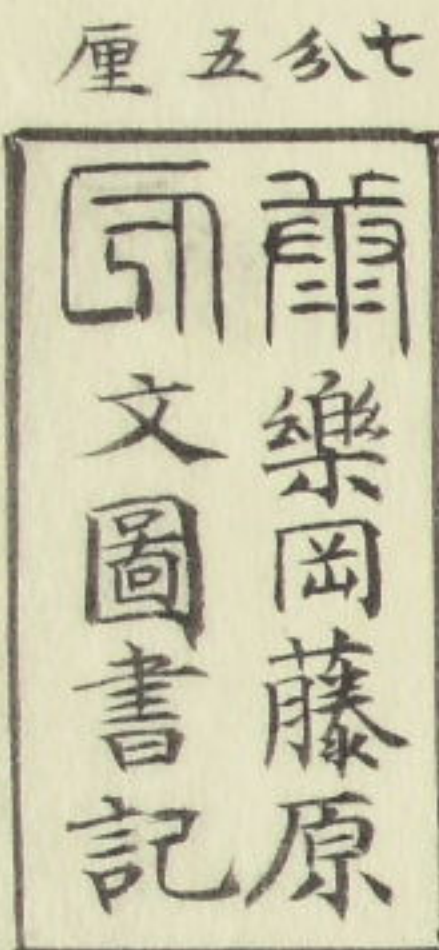 七分五厘
樂岡藤原
文圖書記